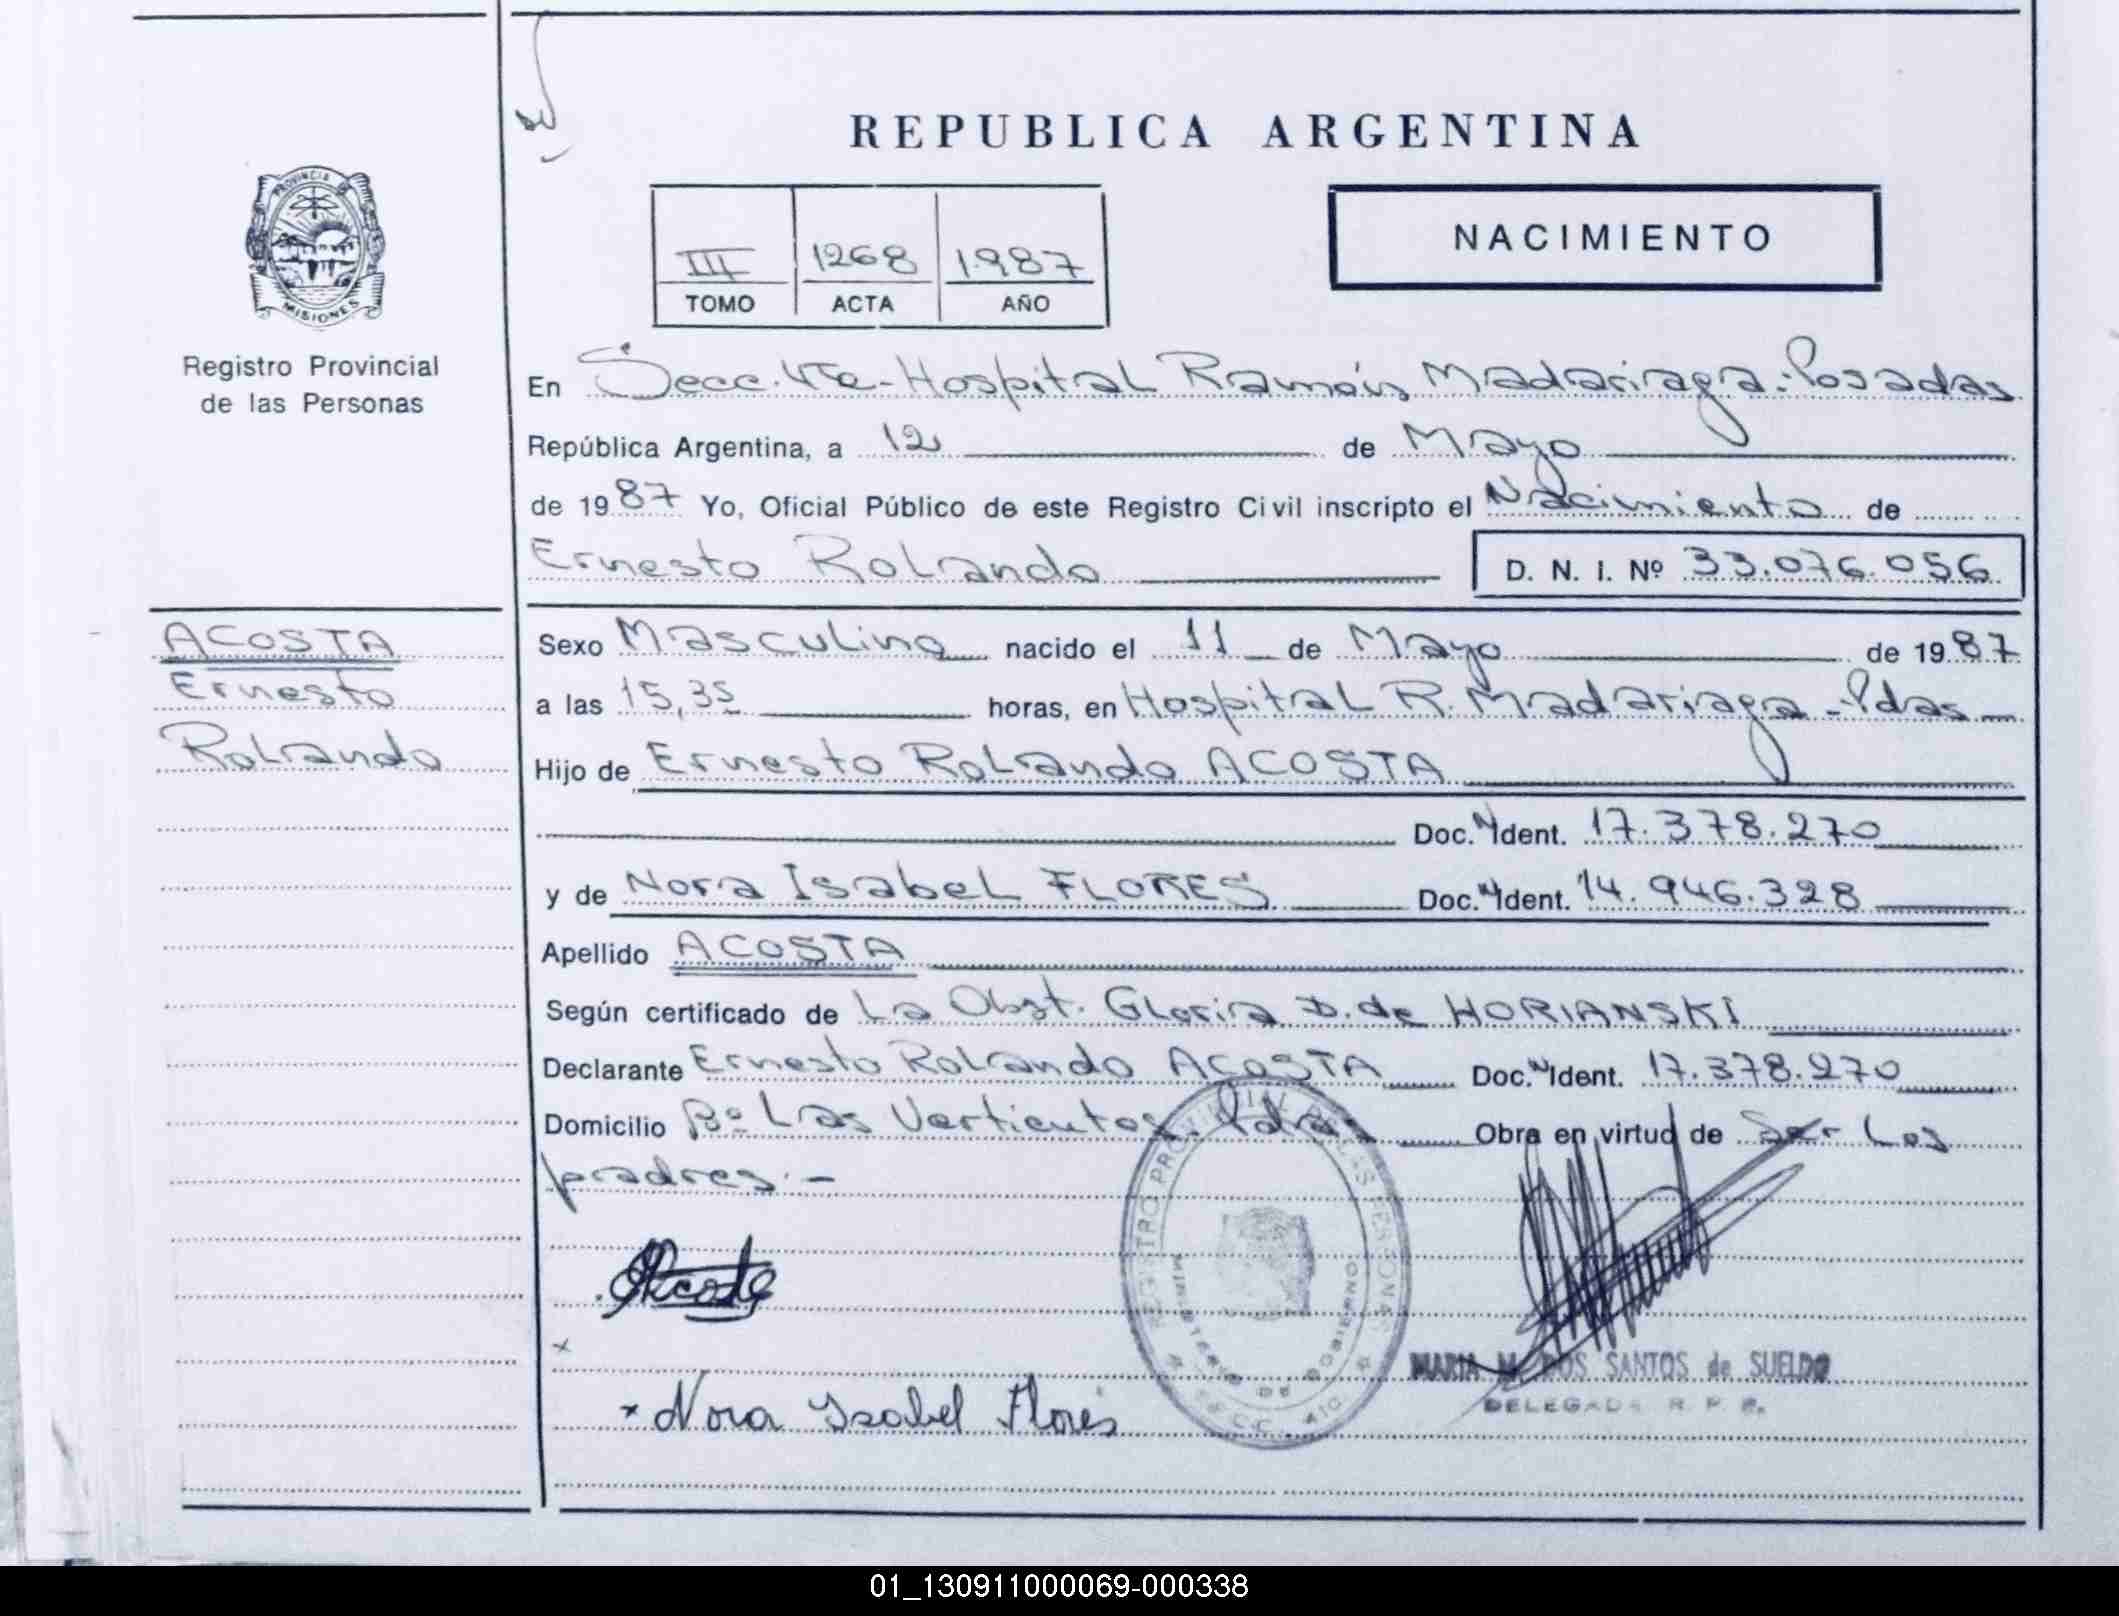 REPUBLICA ARGENTINA
PROVINCIA DE MISIONES
Registro Provincial
de las Personas
III 1268 1987
TOMO ACTA AÑO
NACIMIENTO
En Secc. 4ta-Hospital Ramón Madariaga-Posadas
República Argentina, a 12 de Mayo
de 1987 Yo, Oficial Público de este Registro Civil inscripto el Nacimiento de
Ernesto Rolando D. N. I. Nº 33.076.056
ACOSTA
Ernesto
Rolando
Sexo Masculino nacido el 11 de Mayo de 1987
a las 15,35 horas, en Hospital R. Madariaga-Pdas
Hijo de Ernesto Rolando ACOSTA
Doc. N Ident. 17.378.270
y de Nora Isabel FLORES Doc. N Ident. 14.946.328
Apellido ACOSTA
Según certificado de La Obst. Gloria D. de HORIANSKI
Declarante Ernesto Rolando ACOSTA Doc. N Ident. 17.378.270
Domicilio Bº Las Vertientes. Pdas Obra en virtud de Ser Los
padres.-
REGISTRO PROVINCIAL DE LAS PERSONAS
MINISTERIO DE GOBIERNO
SECC. 4
Acosta
x
x Nora Isabel Flores
MARIA M. DOS SANTOS de SUELDO
DELEGADA R. P. P.
01_130911000069-000338